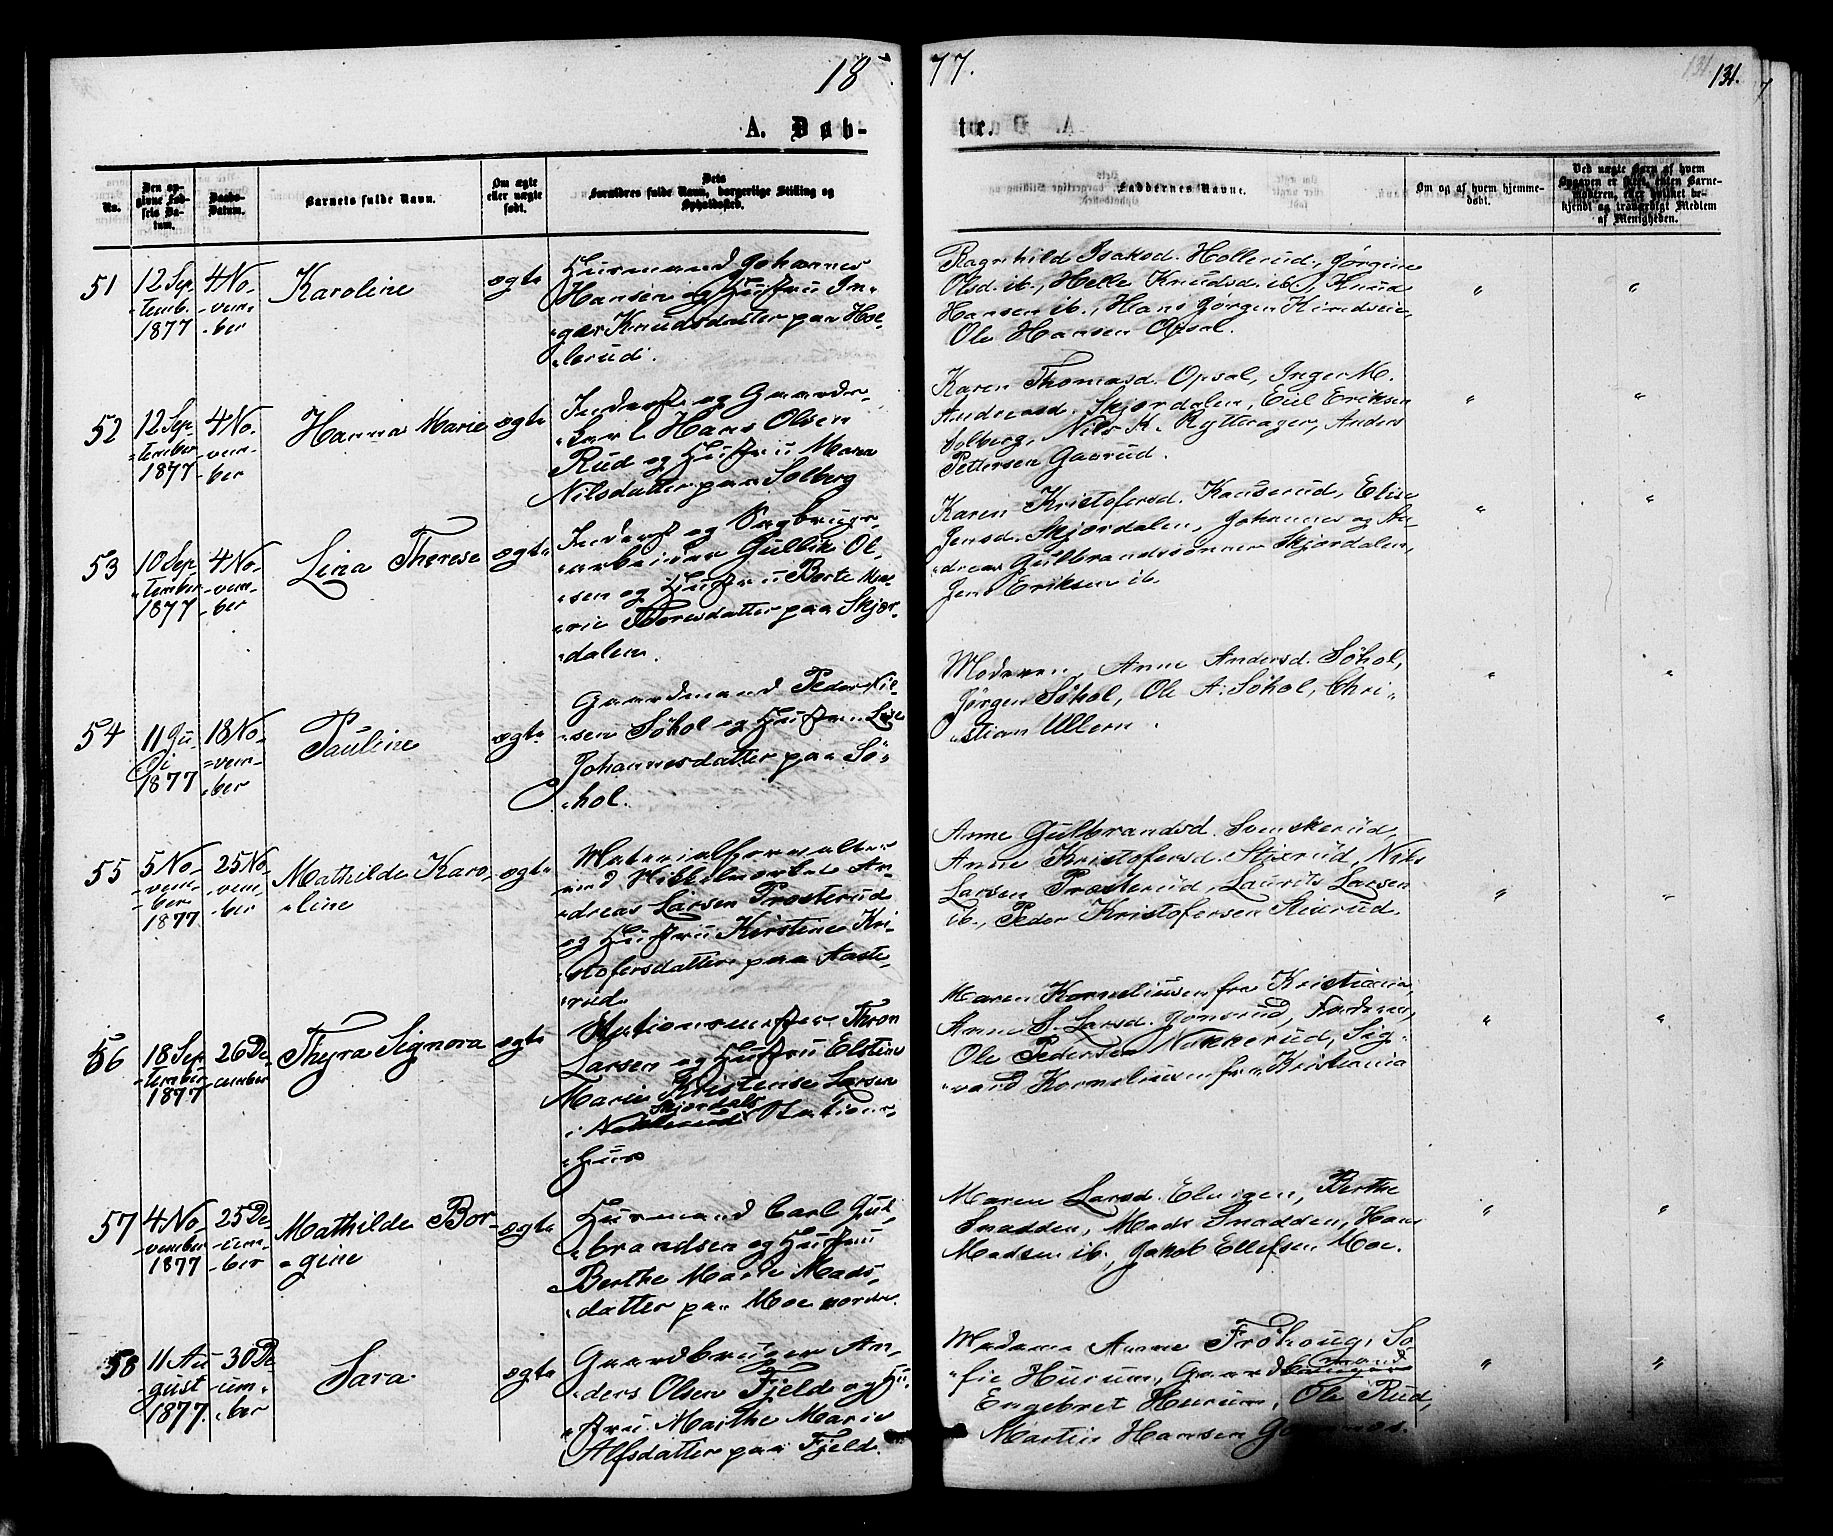 18
77.
131
131.
A. Døb-
te.
No.
Den opgivne Fødsels Datum.
Daabs-Datum.
Barnets fulde Navn.
Om ægte eller uægte født.
Dets Forældres fulde Navn, borgerlige Stilling og Opholdssted.
Faddernes Navne.
Om og af hvem hjemmedøbt.
Ved uægte Barn af hvem Opgaven er skeet, enten Barnemoderen, eller hvilket bekjendt og troværdigt Medlem af Menigheden.
51
12 Sep-
-temb.
1877
4 No-
-vem-
-ber
Karoline
ægte
Husmand Johannes
Hansen og Hustru In-
-ger Knudsdatter paa Hol-
-lerud.
Ragnhild Isaksd. Hollerud, Jørgine
Olsd. ib., Helle Knudsd. ib., Knud
Hansen ib., Hans Jørgen Kindseie,
Ole Hansen Opsal.
"
"
52
12 Sep-
-tember
1877
4 No-
-vem-
-ber
Hanna Marie
ægte
Inderst og Gaardr-
-karl Hans Olsen
Rud og Hustru Maren
Nilsdatter paa Solberg
Karen Thomasd. Opsal, Inger M.
Andersd. Skjørdalen, Eul Eriksen
Solberg, Nils K. Rytterager, Anders
Pettersen Gaarud.
"
"
53
10 Sep
-tember
1877
4 No-
-vem-
-ber
Lina Therese
ægte
Inderst og Sagbrugs-
-arbeider Gullik Ol-
-sen og Hustru Berte Ma-
-rie Thoresdatter paa Skjør-
-dalen.
Karen Kristofersd. Kanserud, Elise
Jensd. Skjørdalen, Johannes og An-
-dreas Gulbrandssønner Skjørdalen,
Jens Eriksen ib.
"
"
54
11 Ju-
li
1877
18 No-
-vem-
-ber
Pauline
ægte
Gaardmand Peder Nil-
-sen Søhol og Hustru Lise
Johannesdatter paa Sø-
-hol.
Moderen, Anne Andersd. Søhol,
Jørgen Søhol, Ole A. Søhol, Chri-
-stian Ullern.
"
"
55
5 No-
-vem-
-ber
1877
25 No-
-vem-
-ber
Mathilde Karo-
-line
ægte
Materialforvalter
ved Nikkelværket An-
-dreas Larsen Prøsterud
og Hustru Kirstine Kri-
-stofersdatter paa Aaste-
-rud
Anne Gulbrandsd. Svenskerud,
Anne Kristofersd. Stixrud, Nils
Larsen Prøsterud, Laurits Larsen
ib., Peder Kristofersen Stixrud.
"
"
56
18 Sep-
-tember
1877
26 De-
-cember
Thyra Signora
ægte
Stationsmester Thron
Larsen og Hustru Elstine
Marie Kristense Larsen
Skjørdals
i Nakkerud Stations-
-huus
Maren Korneliusen fra Kristiania,
Anne S. Larsd. Jønsrud, Faderen,
Ole Pedersen Nakkerud, Sig-
-vard Korneliusen fra Kristiania
"
"
57
4 No-
-vember
1877
25 De-
-cem-
-ber
Mathilde Bor-
-gine
ægte
Husmand Carl Gul-
-brandsen og Hustru
Berthe Marie Mads-
-datter paa Moe nordre.
Maren Larsd. Elvigen, Berthe
Snadden, Mads Snadden, Hans
Madsen ib., Jakob Ellefsen Moe.
"
"
58
11 Au
-gust
1877.
30 De
-cem-
-ber
Sara.
ægte
Gaardbruger An-
-ders Olsen Fjeld og Hu-
-stru Marthe Marie
Alfsdatter paa Fjeld.
Madame Anne Frøhoug, So-
mand
-fie Hurum, Gaardbruger
Engebret Hurum, Ole Rud,
Martin Hansen
"
"